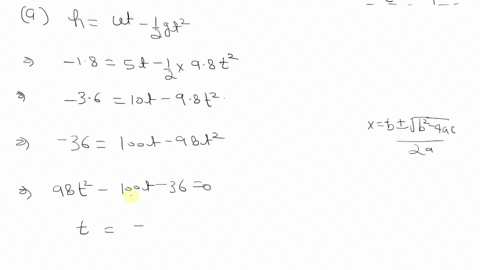 (a) h = ut - 1/2 gt²
⇒ -1.8 = 5t - 1/2 × 9.8t²
⇒ -3.6 = 10t - 9.8t²
⇒ -36 = 100t - 98t²
x = -b ± √b²-4ac / 2a
⇒ 98t² - 100t - 36 = 0
t = -